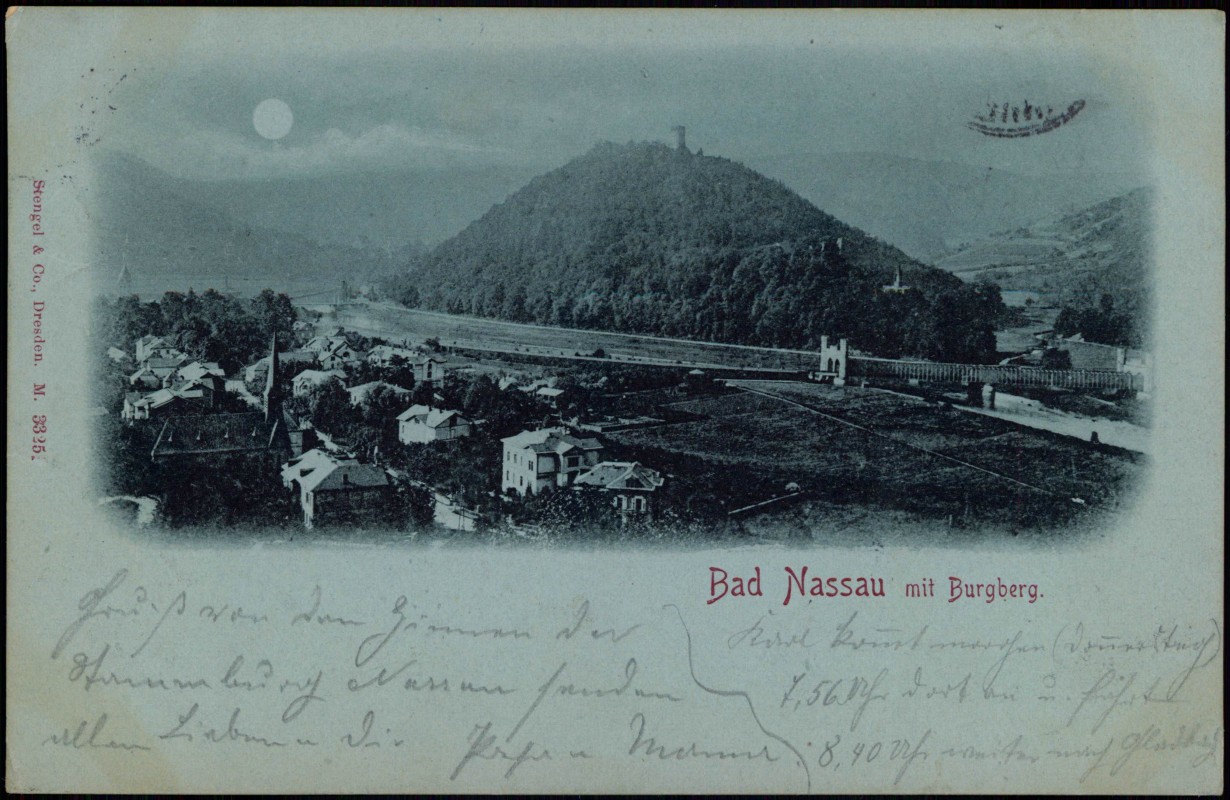 Stengel & Co., Dresden. M. 3325.
Bad Nassau mit Burgberg.
Gruß von den Zinnen der
Stammburg Nassau senden
allen Lieben die Papa u Mama
Karl kom̅t morgen (Don̅erstag)
7,56 Uhr dort an u. fährt
8,40 Uhr weiter nach Gladbach